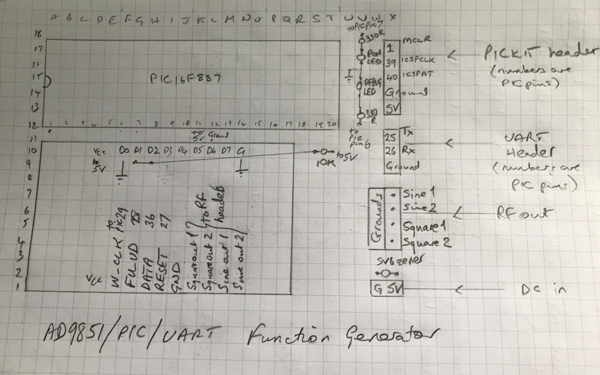 A B C D E F G H I J K L M N O P Q R S T U V W X
18
17
16
15
14
13
12
11
10
9
8
7
6
5
4
3
2
1
PIC16F887
1 2 3 4 5 6 7 8 9 10 11 12 13 14 15 16 17 18 19 20
to PIC pin 7
330R
POWER LED
DEBUG LED
330 R
to PIC pin 6
1 MCLR
39 ICSPCLK
40 ICSPDAT
Ground
5V
PICKIT header
(numbers are
PIC pins)
25 Tx
26 Rx
Ground
UART
Header
(numbers are
PIC pins)
to Ground
Vcc D0 D1 D2 D3 D4 D5 D6 D7 G
to 5V
to 5V
10K
Vcc
W-CLK to PIC 29
FU_UD 28
DATA 36
RESET 27
GND
Square out 1
Square out 2
Sine out 1
Sine out 2
to RF header
Grounds
Sine 1
Sine 2
Square 1
Square 2
RF out
5V6 zener
G 5V
DC in
AD9851/PIC/UART Function Generator